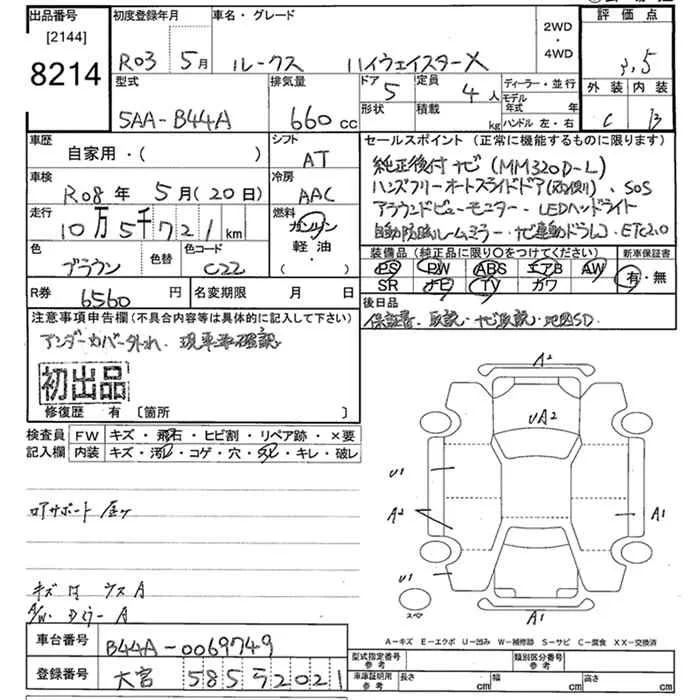 出品番号
[2144]
8214
初度登録年月
R03年 5月
車名・グレード
ルークス ハイウェイスターX
2WD
・
4WD
評価点
3.5
外装 内装
C B
型式
5AA-B44A
排気量
660 cc
ドア
5
定員
4人
形状
積載
kg
ディーラー・並行
モデル年式 年
ハンドル 左・右
車歴
自家用・( )
シフト
AT
車検
R08年 5月(20日)
冷房
AAC
走行
10万5千721km
燃料
ガソリン
軽油・
( )
色
ブラウン
色替
色コード
C22
セールスポイント(正常に機能するものに限ります)
純正後付ナビ(MM320D-L)
ハンズフリーオートスライドドア(両側)、SOS
アラウンドビューモニター・LEDヘッドライト
自動防眩ルームミラー・ナビ連動ドラレコ・ETC2.0
装備品(純正品に限り○をつけてください) 新車保証書
PS PW ABS エアB AW
SR ナビ TV カワ
有・無
R券
6560円
名変期限 月 日
後日品
保証書、取説・ナビ取説・地図SD
注意事項申告欄(不具合内容等は具体的に記入して下さい)
アンダーカバー外れ、現車要確認
初出品
修復歴 有 [箇所 ]
検査員 FW キズ・飛石・ヒビ割・リペア跡・×要
記入欄 内装 キズ・汚レ・コゲ・穴・スレ・キレ・破レ
A2
UA2
U1
A2
A1
U1
スペア
A1
ロアサポート
キズ ウスA
A/W・ A
A-キズ E-エクボ U-凹み W-補修跡 S-サビ C-腐食 XX-交換済
車台番号
B44A-0069749
登録番号
大宮 585 ラ 2021
型式指定番号
参考
類別区分番号
参考
車庫証明用
参考
長さ cm
幅 cm
高さ cm